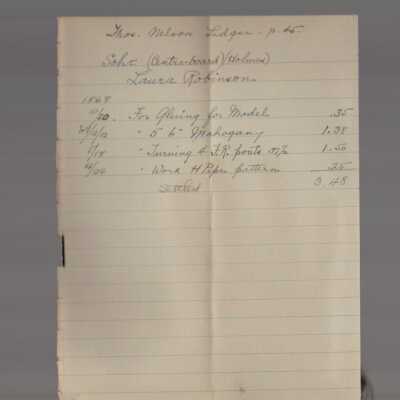 Thos. Nelson Ledger - p. 45
Schr. (Centre-board) (Holmes)
Laura Robinson
1868
/20. For Gluing for Model .35
" 5 ft Mahogany 1.38
/18 " Turning 4 posts 1.50
/24 " Work H Pipe pattern .25
Settled 3.48